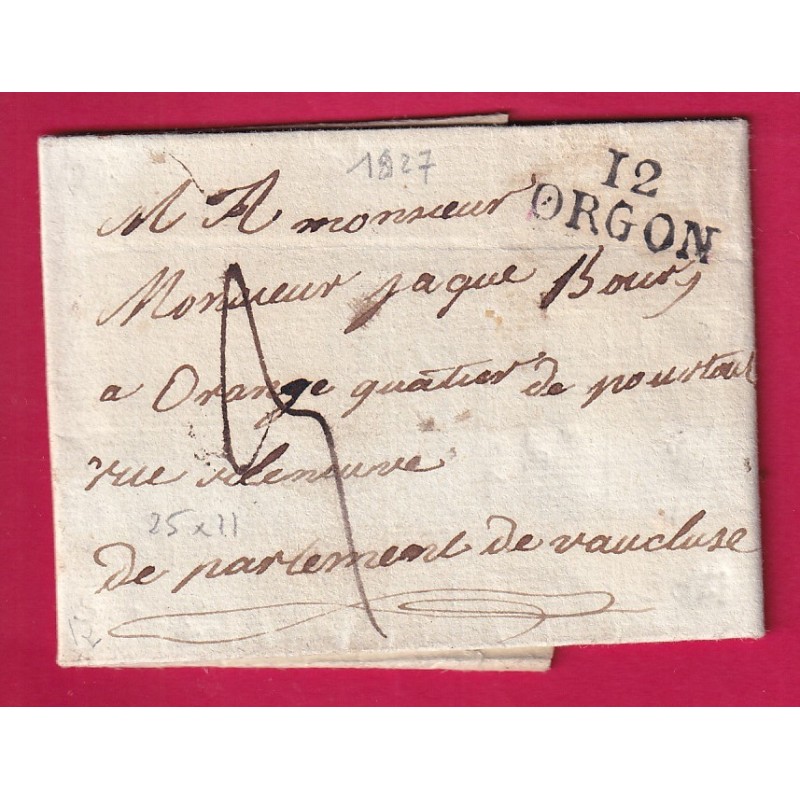 1827
12
ORGON
M A monsieur
Monsieur jaque Bourg
a Orange quatier de pourtoul
rue vileneuve
25 x 11
de partement de vaucluse